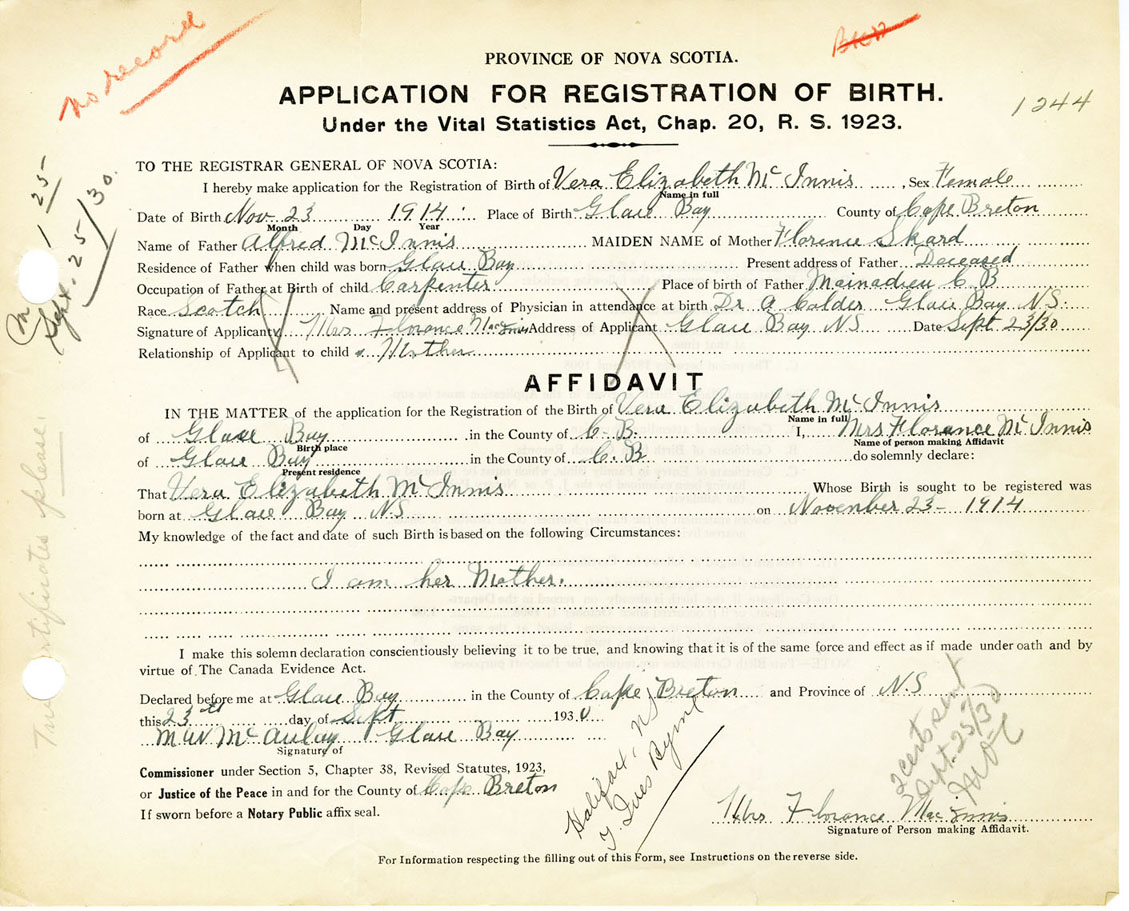 no record
PROVINCE OF NOVA SCOTIA.
APPLICATION FOR REGISTRATION OF BIRTH.
1244
Under the Vital Statistics Act, Chap. 20, R. S. 1923.
TO THE REGISTRAR GENERAL OF NOVA SCOTIA:
I hereby make application for the Registration of Birth of Vera Elizabeth McInnis, Sex Female
Name in full
Date of Birth Nov 23 1914 Place of Birth Glace Bay County of Cape Breton
Month Day Year
Name of Father Alfred McInnis MAIDEN NAME of Mother Florence Skard
Residence of Father when child was born Glace Bay Present address of Father Deceased
Occupation of Father at Birth of child Carpenter Place of birth of Father Mainadieu C B
Race Scotch Name and present address of Physician in attendance at birth Dr A Calder Glace Bay NS.
Signature of Applicant Mrs Florence MacInnis Address of Applicant Glace Bay NS Date Sept 23/30
Relationship of Applicant to child Mother
AFFIDAVIT
IN THE MATTER of the application for the Registration of the Birth of Vera Elizabeth McInnis
Name in full
of Glace Bay in the County of C B. I, Mrs Florance McInnis
Birth place Name of person making Affidavit
of Glace Bay in the County of C.B. do solemnly declare:
Present residence
That Vera Elizabeth McInnis Whose Birth is sought to be registered was
born at Glace Bay NS on November 23 - 1914
My knowledge of the fact and date of such Birth is based on the following Circumstances:
I am her Mother.
I make this solemn declaration conscientiously believing it to be true, and knowing that it is of the same force and effect as if made under oath and by
virtue of The Canada Evidence Act.
Declared before me at Glace Bay in the County of Cape Breton and Province of N.S
this 23rd day of Sept 1930
M W McAulay Glace Bay
Signature of
Commissioner under Section 5, Chapter 38, Revised Statutes, 1923,
or Justice of the Peace in and for the County of Cape Breton
If sworn before a Notary Public affix seal.
Mrs Florance MacInnis
Signature of Person making Affidavit.
For Information respecting the filling out of this Form, see Instructions on the reverse side.
1 25
Sept. 25/30.
certificates please.
Halifax, NS
Ives Byrne
2 cert sent
Sept. 25/30